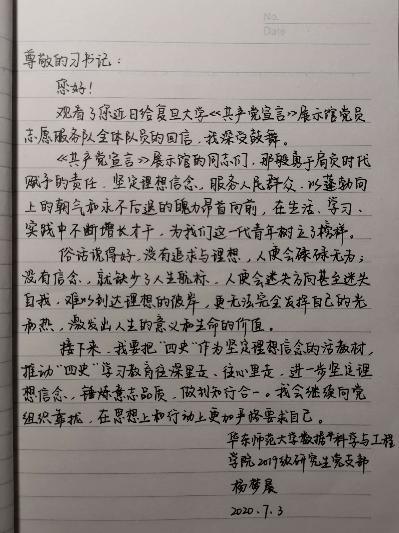 No.
Date
尊敬的习书记:
您好!
观看了您近日给复旦大学《共产党宣言》展示馆党员
志愿服务队全体队员的回信,我深受鼓舞。
《共产党宣言》展示馆的同志们,那种勇于肩负时代
赋予的责任,坚定理想信念,服务人民群众,以蓬勃向
上的朝气和永不后退的魄力昂首向前,在生活、学习、
实践中不断增长才干,为我们这一代青年树立了榜样。
俗话说得好,没有追求与理想,人便会碌碌无为;
没有信念,就缺少了人生航标,人便会迷失方向甚至迷失
自我,难以到达理想的彼岸,更无法完全发挥自己的光
和热,激发出人生的意义和生命的价值。
接下来,我要把“四史”作为坚定理想信念的活教材,
推动“四史”学习教育往深里走、往心里走,进一步坚定理
想信念,锤炼意志品质,做到知行合一。我会继续向党
组织靠拢,在思想上和行动上更加严格要求自己。
华东师范大学数据科学与工程
学院2019级研究生党支部
杨梦晨
2020.7.3